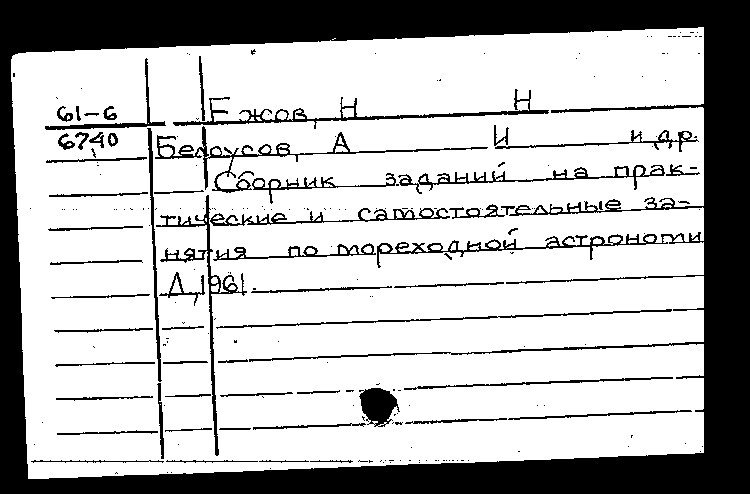 61-6 Ежов, Н Н
6740 Белоусов, А И и др.
Сборник заданий на прак-
тические и самостоятельные за-
нятия по мореходной астрономи
Л, 1961.